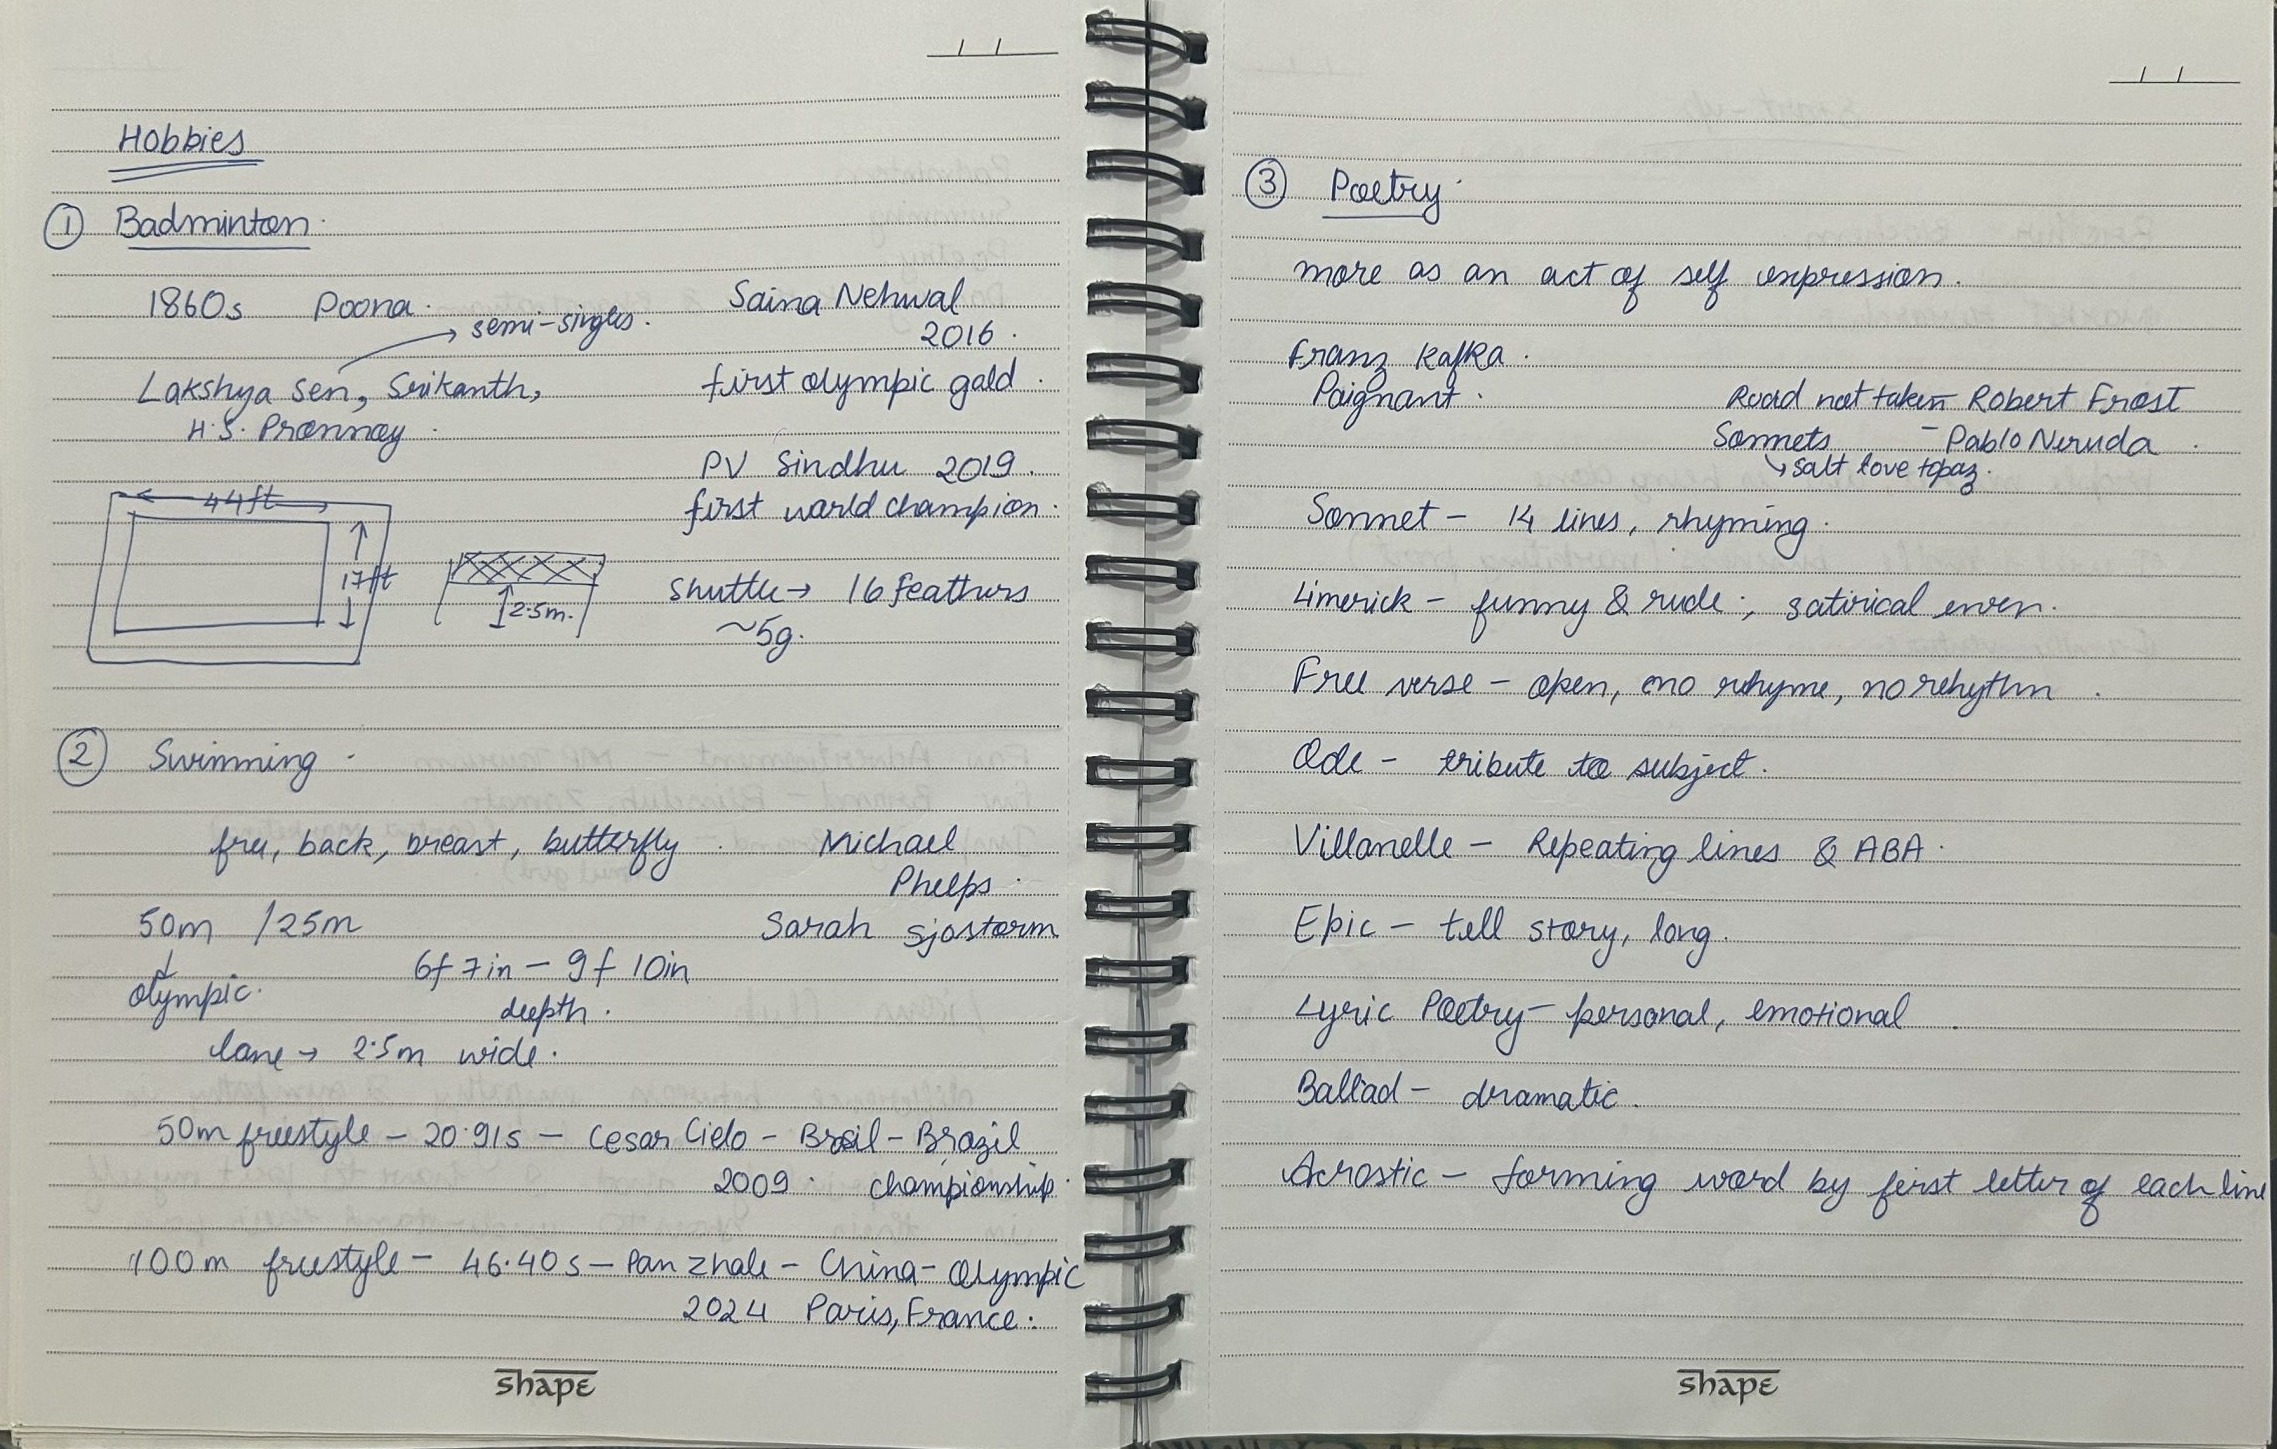 Hobbies
① Badminton.
1860s Poona.
→ semi-singles.
Lakshya Sen, Srikanth,
H.S. Prannoy.
Saina Nehwal
2016.
first olympic gold.
PV Sindhu 2019.
first world champion.
44ft
17ft
2.5m.
shuttle → 16 feathers
~5g.
② Swimming.
free, back, breast, butterfly.
Michael
Phelps.
50m /25m
Sarah Sjostorm
↓
olympic.
6f 7in - 9f 10in
depth.
lane → 2.5m wide.
50m freestyle - 20.91s - Cesar Cielo - Brazil
2009. championship.
100m freestyle - 46.40s - Pan Zhale - China - Olympic
2024 Paris, France.
shape
③ Poetry.
more as an act of self expression.
Franz Kafka.
Poignant.
Road not taken - Robert Frost
Sonnets - Pablo Neruda.
↳ salt love topaz.
Sonnet - 14 lines, rhyming.
Limerick - funny & rude; satirical
Free verse - open, no rhyme, no rehythm.
Ode - tribute to subject.
Villanelle - Repeating lines & ABA.
Epic - tell story, long.
Lyric Poetry - personal, emotional.
Ballad - dramatic.
Acrostic - forming word by first letter of each line
shape